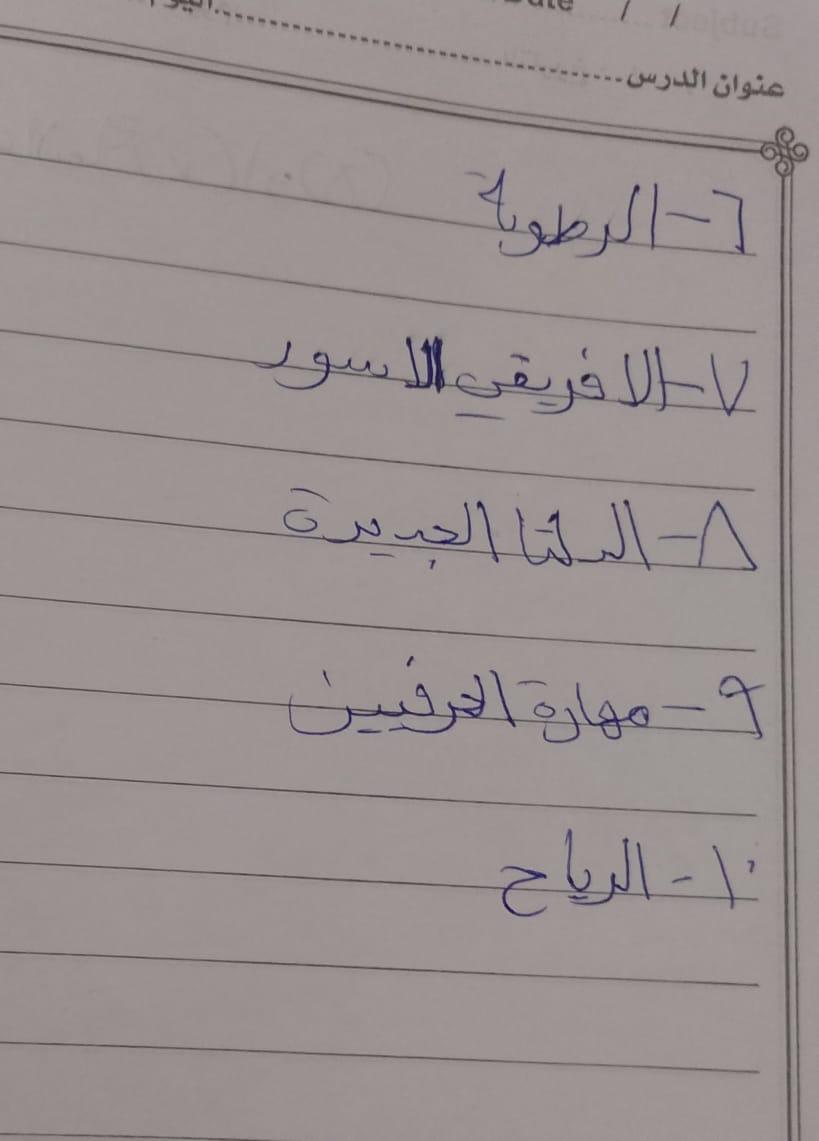 Date / /
اليوم
عنوان الدرس
٦- الرطوبة
٧- الافريقي الاسود
٨- الدلتا الجديدة
٩- مهارة الحرفيين
١٠- الرياح